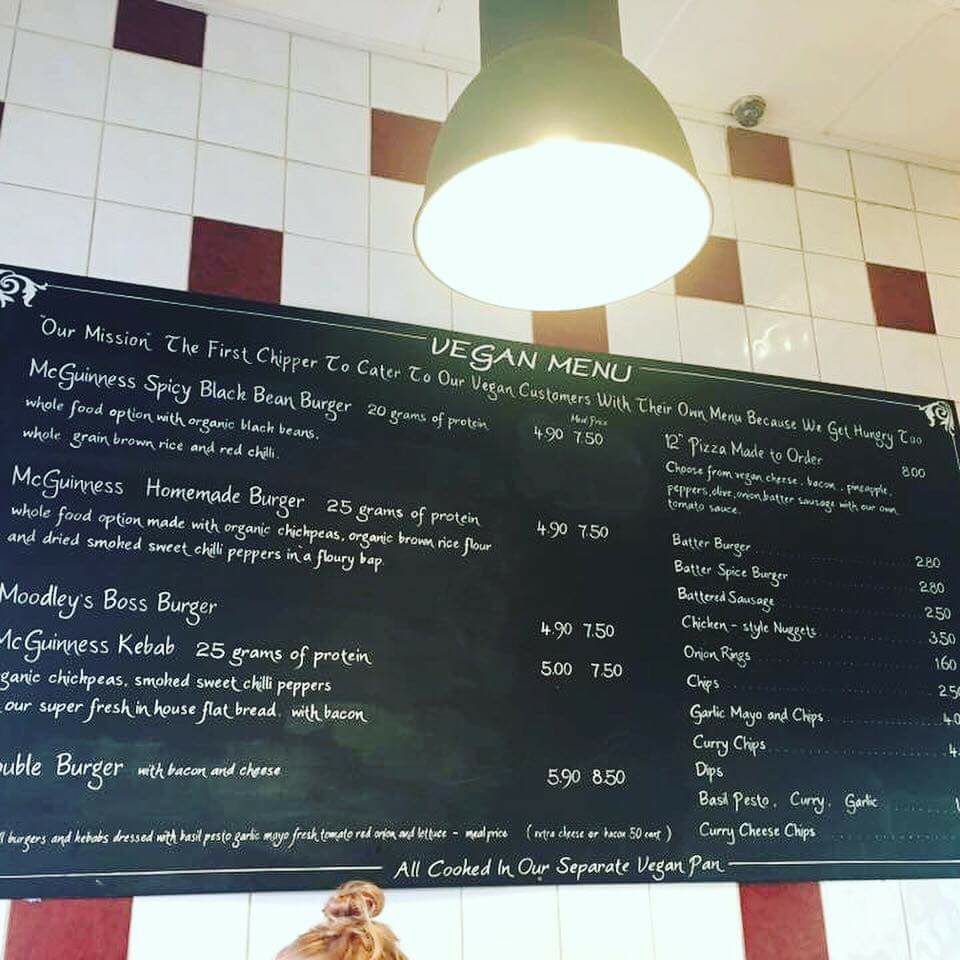 VEGAN MENU
"Our Mission" The First Chipper To Cater To Our Vegan Customers With Their Own Menu Because We Get Hungry Too
McGuinness Spicy Black Bean Burger 20 grams of protein
Meal Price
4.90 7.50
whole food option with organic black beans.
whole grain brown rice and red chilli.
McGuinness Homemade Burger 25 grams of protein
4.90 7.50
whole food option made with organic chickpeas, organic brown rice flour
and dried smoked sweet chilli peppers in a floury bap.
Moodley's Boss Burger
4.90 7.50
McGuinness Kebab 25 grams of protein
5.00 7.50
ganic chickpeas, smoked sweet chilli peppers
our super fresh in house flat bread. with bacon
uble Burger with bacon and cheese
5.90 8.50
ll burgers and kebabs dressed with basil pesto garlic mayo fresh tomato red onion and lettuce - meal price (extra cheese or bacon 50 cent)
12" Pizza Made to Order 8.00
Choose from vegan cheese, bacon, pineapple,
peppers, olive, onion, batter sausage with our own
tomato sauce.
Batter Burger 2.80
Batter Spice Burger 2.80
Battered Sausage 2.50
Chicken-style Nuggets 3.50
Onion Rings 1.60
Chips 2.50
Garlic Mayo and Chips 4.0
Curry Chips 4.
Dips
Basil Pesto, Curry, Garlic
Curry Cheese Chips
All Cooked In Our Separate Vegan Pan